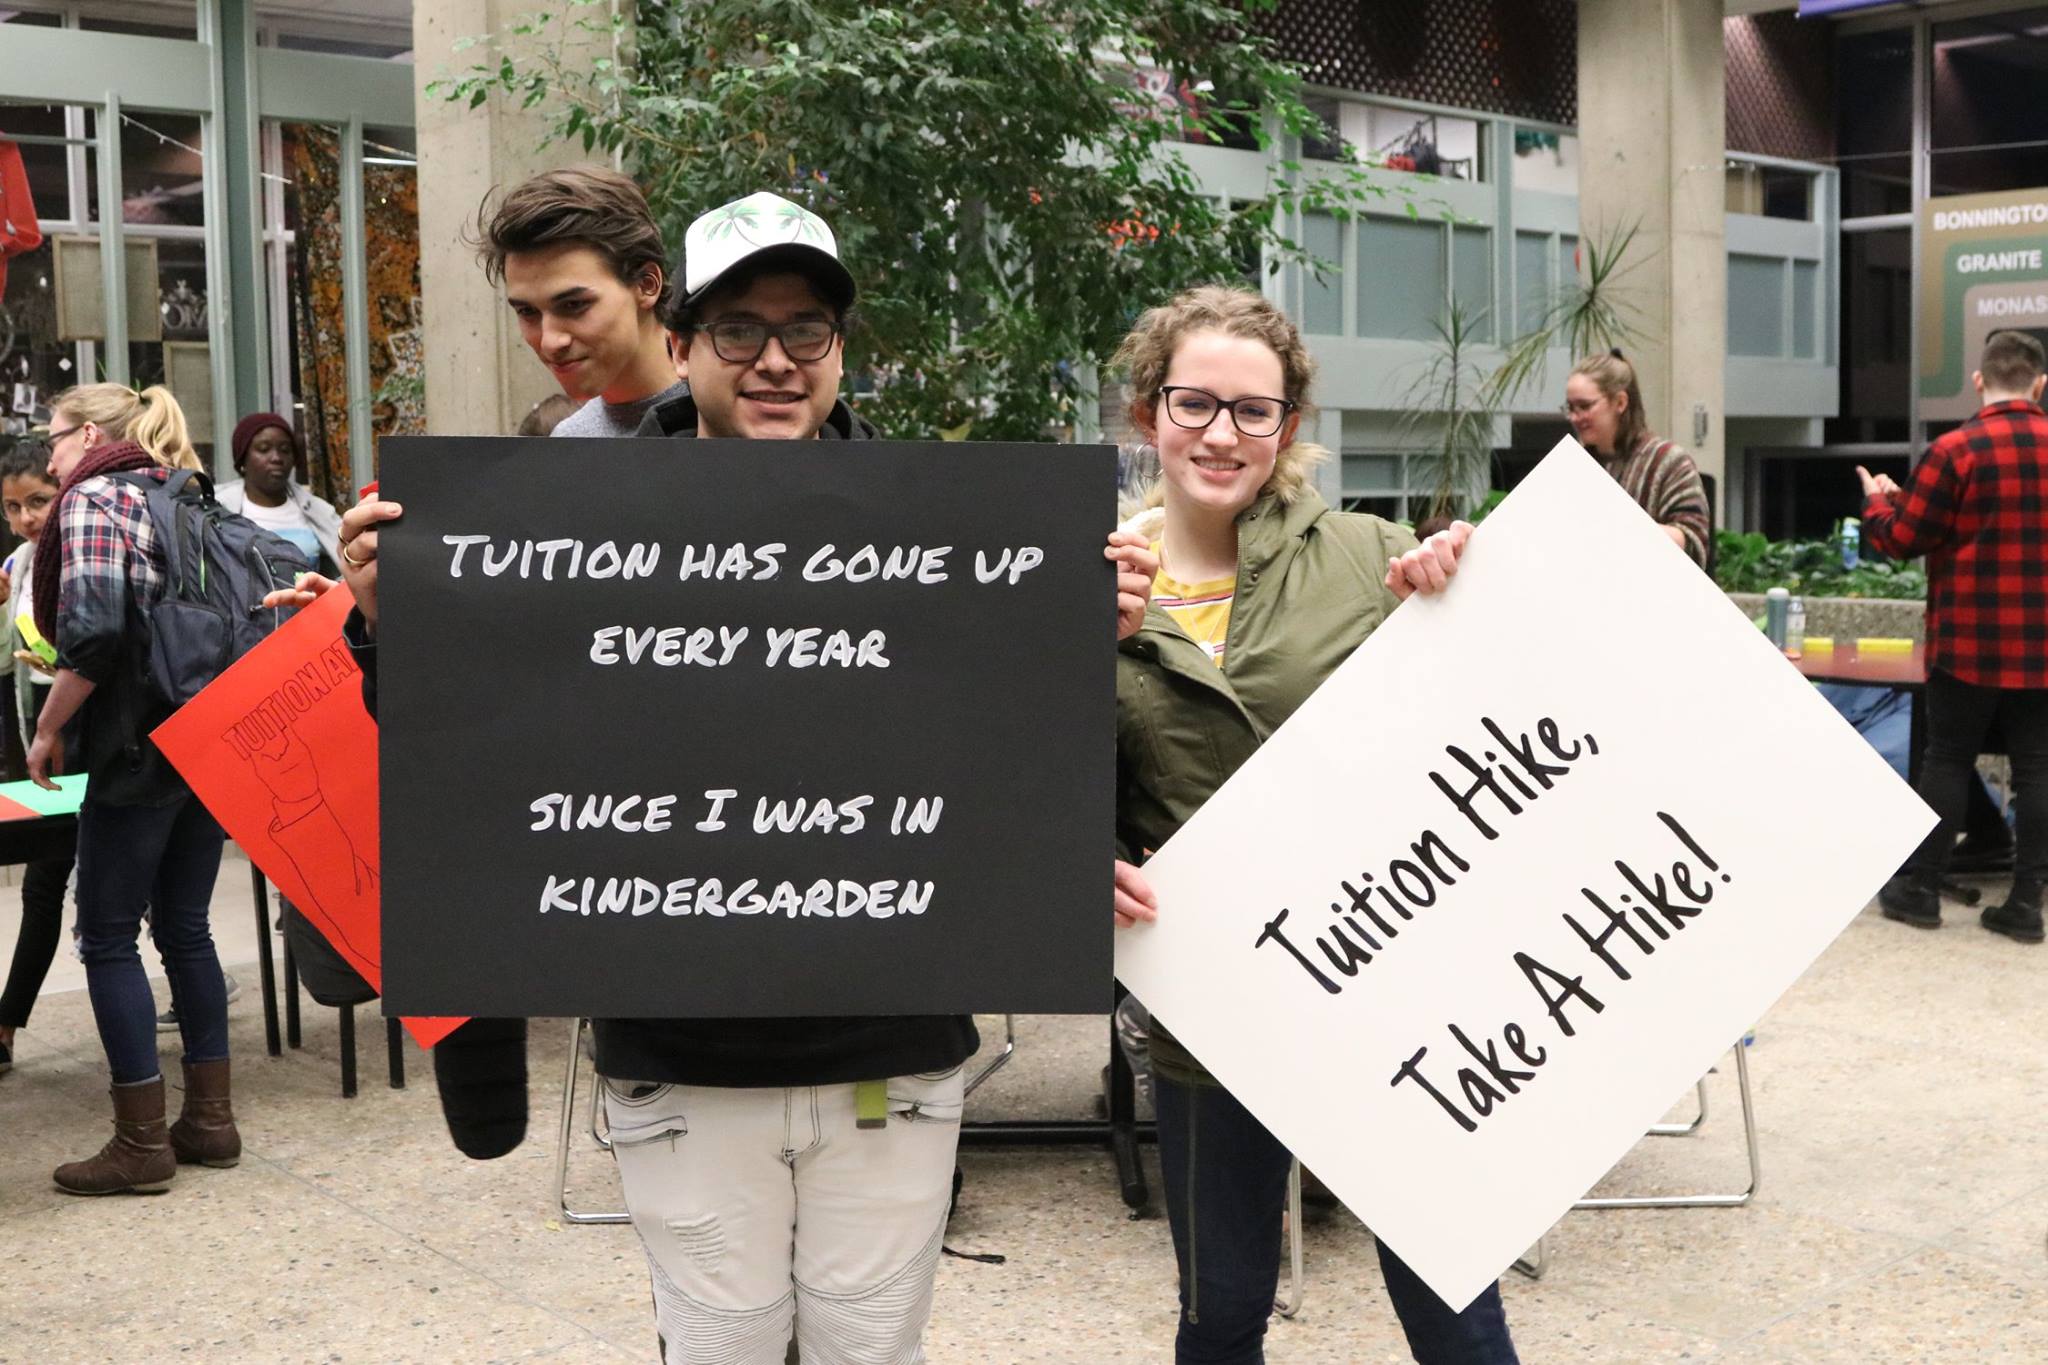 TUITION HAS GONE UP
EVERY YEAR
SINCE I WAS IN
KINDERGARDEN
Tuition Hike,
Take A Hike!
TUITION
BONNINGTO
GRANITE
MONAS